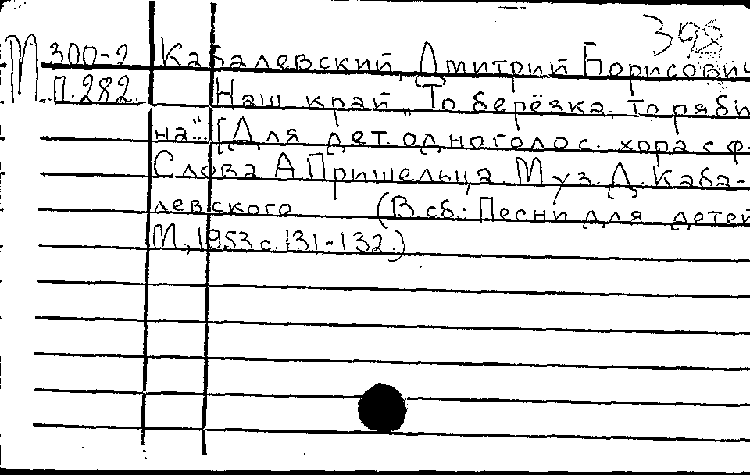 398
М 300-2 Кабалевский, Дмитрий Борисович
М.П.282. Наш край „То берёзка, то ряби
на“. [Для дет. одноголос. хора с ф.
Слова А. Пришельца. Муз. Д. Каба-
левского (В сб.: Песни для детей
М., 1953 с. 131-132.)